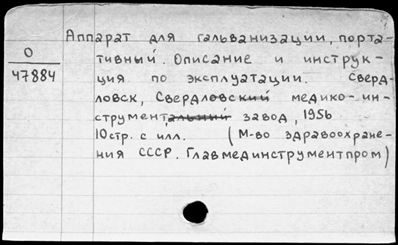 Аппарат для гальванизации, порта-
О
47884
тивный. Описание и инструк-
ция по эксплуатации. Сверд-
ловск, Свердловский медико-ин-
струментальный завод, 1956
10стр. с илл. (М-во здравоохране-
ния СССР. Главмединструментпром)